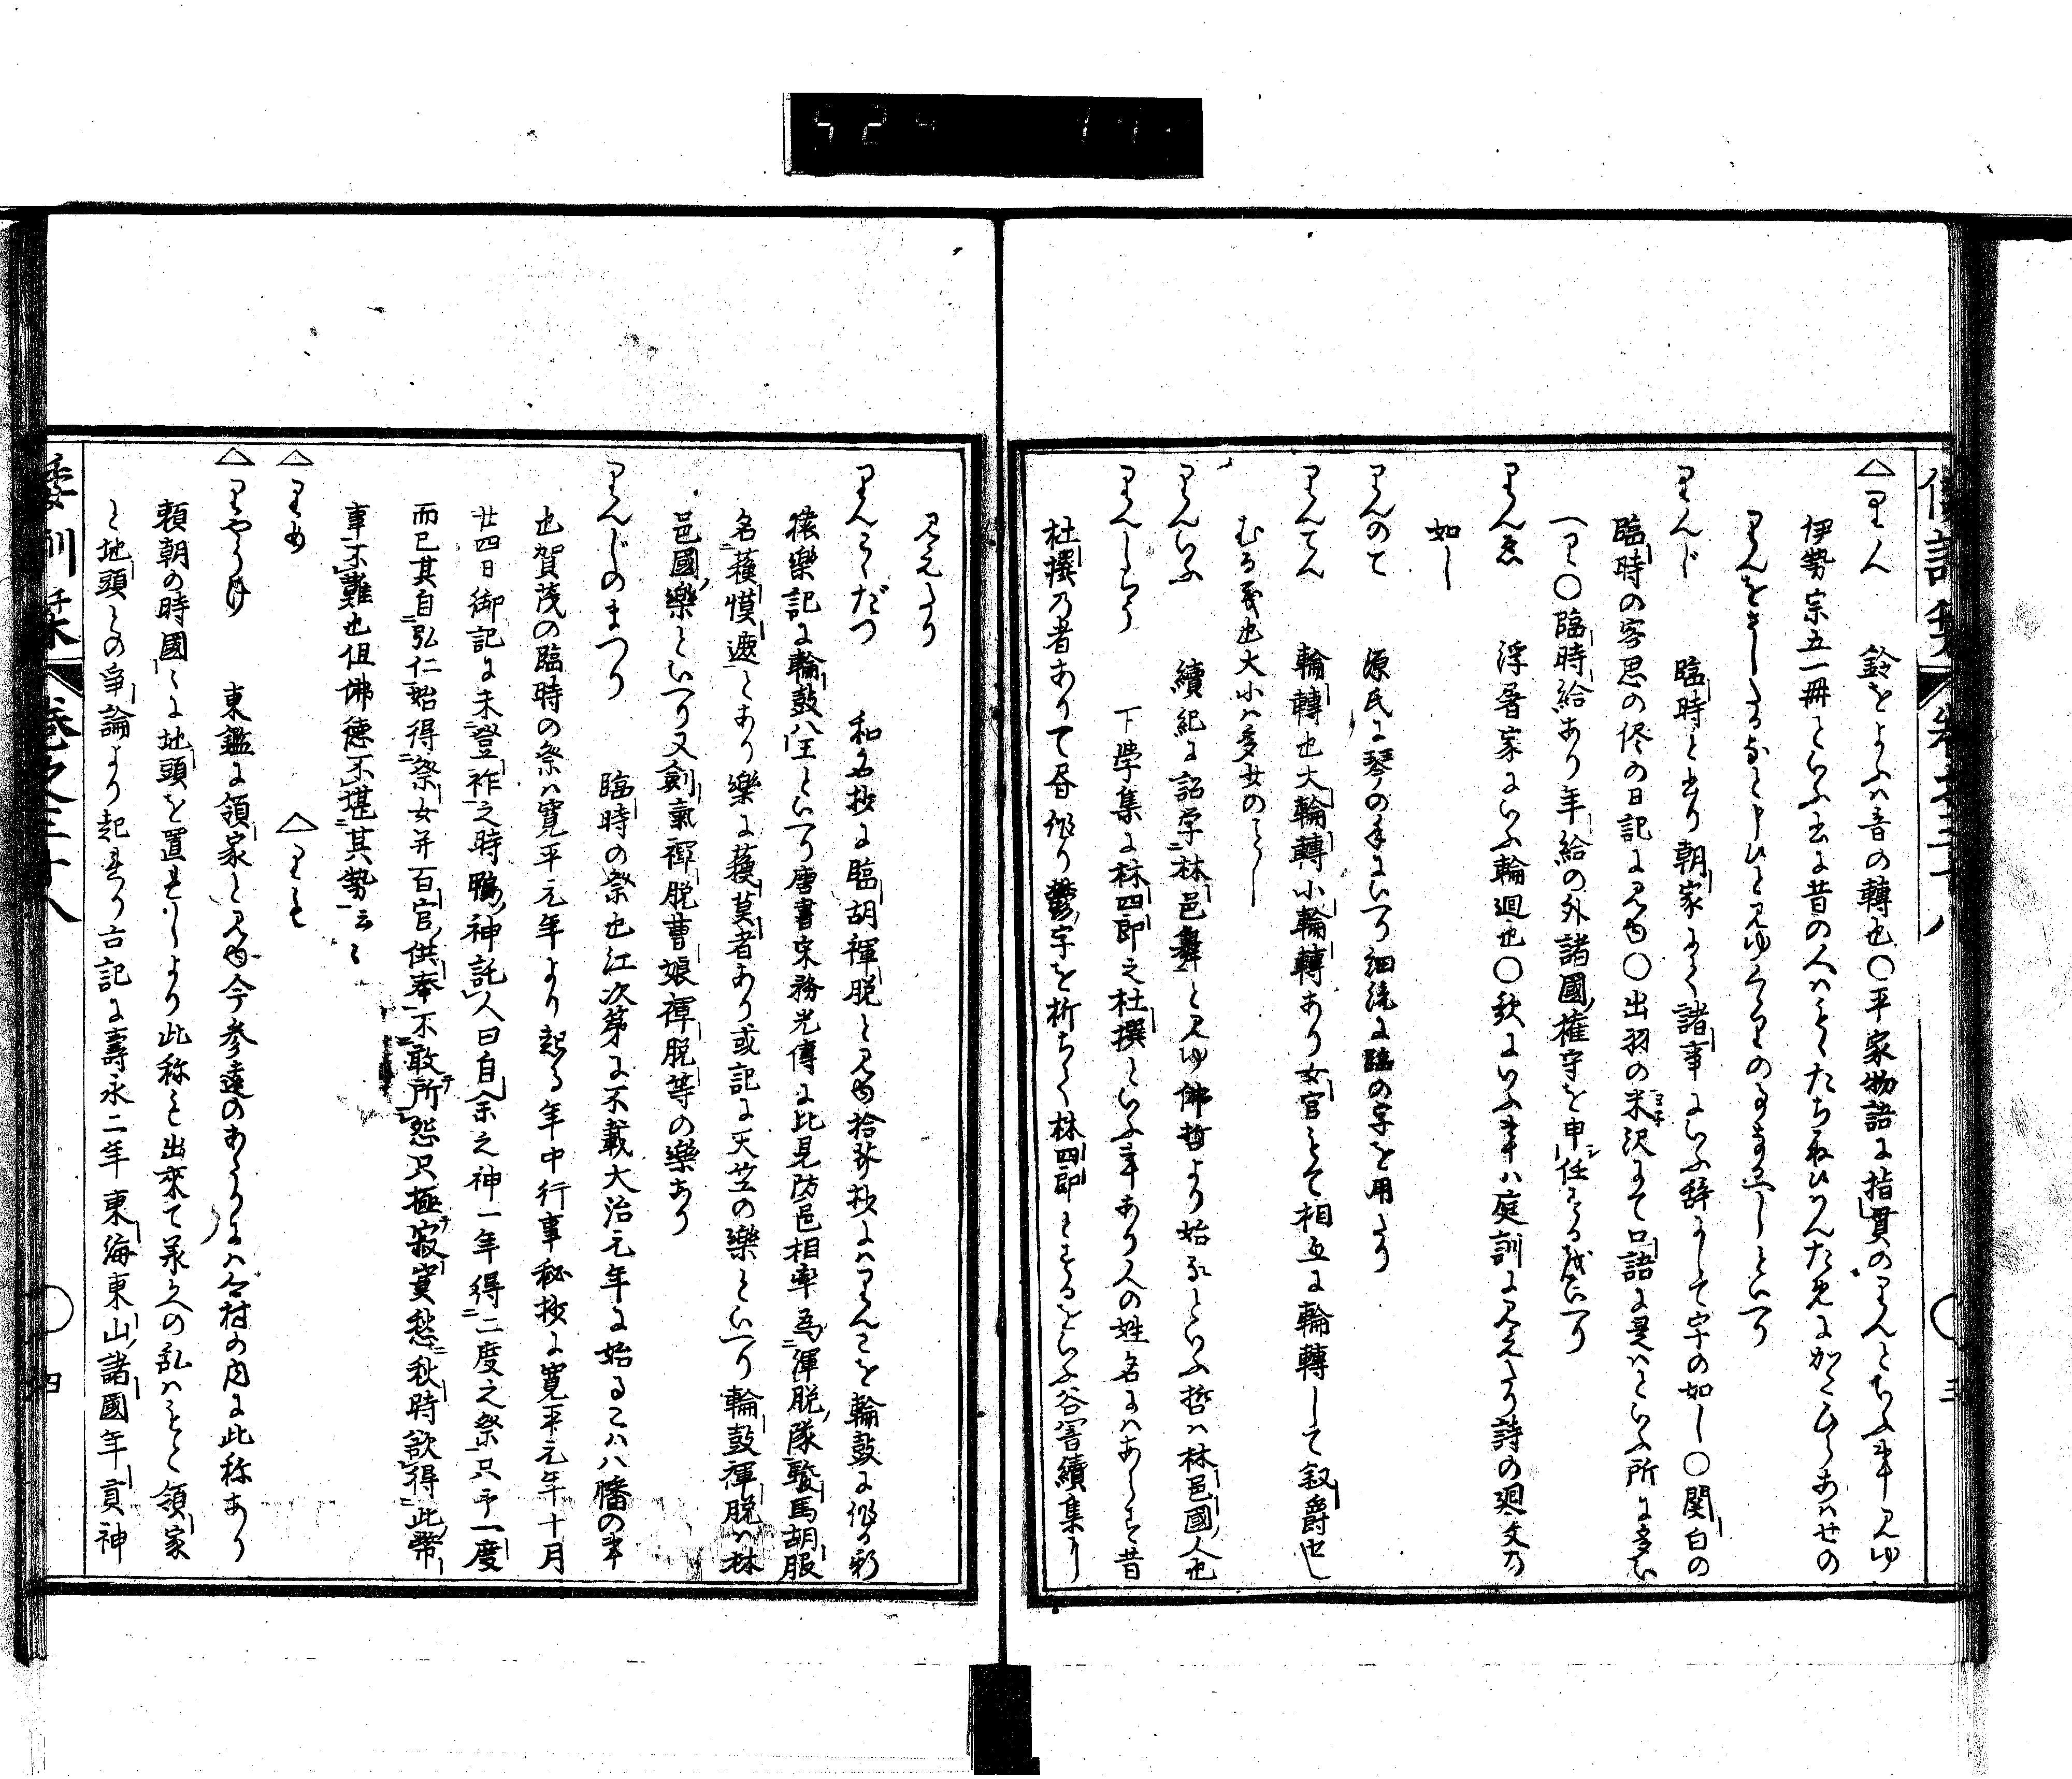 △りん　鈴をよふハ音の轉也〇平家物語に指貫のりんといふ事見ゆ
伊勢宗五一冊といふ書に昔の人ハもゝたちねひりんた先に
りんをさしたるなと申ひと見ゆ
りんじ　臨時と書り朝家よく諸事にいふ辞にして字の如し〇関白の
臨時の客思の侭の日記に見ゆ〇出羽の米沢にて口語に是ハといふ所に多い
へり〇臨時給あり年給の外諸國權守を申任するをいへり
りんゑ　浮屠家にいふ輪廻也〇歌にいふ事ハ庭訓に見えたり詩の廻文乃
如し
りんのて　源氏に琴の手にいへり細流に臨の字を用たり
りんてん　輪轉也大輪轉小輪轉あり女官とて相互に輪轉して叙爵せし
むる義也大小ハ多少のこゝ
りんいふ　續紀に詔学林邑舞と見ゆ佛哲より始るといふ哲ハ林邑國人也
りんしらう　下学集に林四郎之杜撰といふ事あり人の姓名にハあらす昔
杜撰乃者ありて昼作り鬱字を析ちく林四郎とするをいふ谷響續集に
見えたり
りんこだつ　和名抄に臨胡褌脱と見ゆ拾芥抄にハりんこを輪鼓に作り新
猿樂記に輪鼓八王といへり唐書宋務光傳に比見防邑相率為渾脱隊駿馬胡服
名蘓慔遮とあり樂に蘓莫者あり或記に天竺の樂といへり輪鼓褌脱ハ林
邑國樂といへり又劍氣褌脱曹娘褌脱等の樂あり
りんじのまつり　臨時の祭也江次第に不載大治元年に始るこハ八幡の事
也賀茂の臨時の祭ハ寛平元年より起る年中行事秘抄に寛平元年十月
廿四日御記に未登祚之時鴨神託人曰自余之神一年得二度之祭只予一度
而已其自弘仁始得祭女并百官供奉不敢所怨只極寂寞愁秋時欲得此幣
事不難也但佛徳不堪其勢云〻
△りめ　△りも
△りやうけ　東鑑に領家と見ゆ今参遠のあたりにハ今村の内に此称あり
頼朝の時國〻に地頭を置れしより此称も出來て承久の乱ハもと領家
と地頭との爭論より起れり古記に壽永二年東海東山諸國年貢神
倭訓栞　巻之三十八　三
倭訓栞　巻之三十八　四